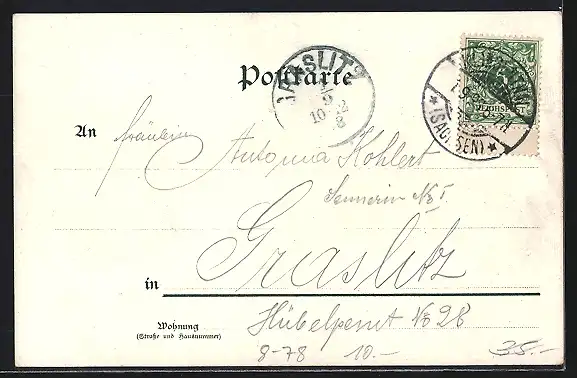 Postkarte
GRASLITZ
9
10
REICHSPOST
*(SACHSEN)*
An Fräulein
Antonia Kohlert
in Graslitz
Wohnung
(Straße und Hausnummer)
No 28
8-78 10.- 35.-